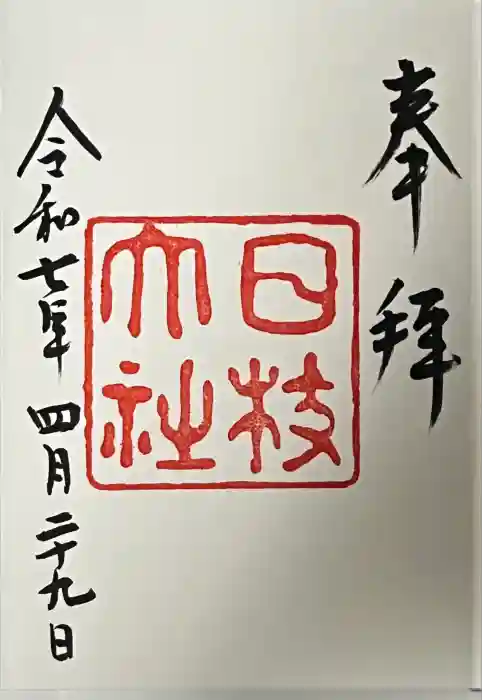 奉拝
日枝
大社
令和七年四月二十九日